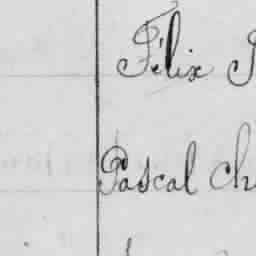 Félix
Pascal Ch